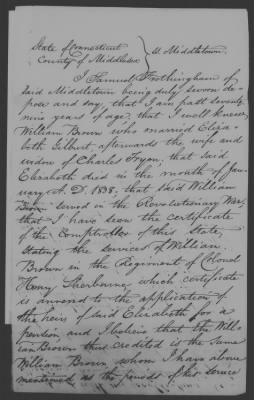 State of Connecticut
County of Middlesex } ss. Middletown.
I Samuel Frothingham of
said Middletown being duly sworn de-
pose and say, that I am past seventy
nine years of age, that I well knew
William Brown who married Eliza-
beth Gilbert afterwards the wife and
widow of Charles Fryon, that said
Elizabeth died in the month of Jan-
uary A.D. 1838. that said William
Brown served in the Revolutionary War,
that I have seen the certificate
of the Comptroller of this State,
stating the services of William
Brown in the Regiment of Colonel
Henry Sherburne, which certificate
is annexed to the application of
the heirs of said Elizabeth for a
pension and I believe that the Will-
iam Brown thus credited is the same
William Brown whom I have above
mentioned as the periods of his service